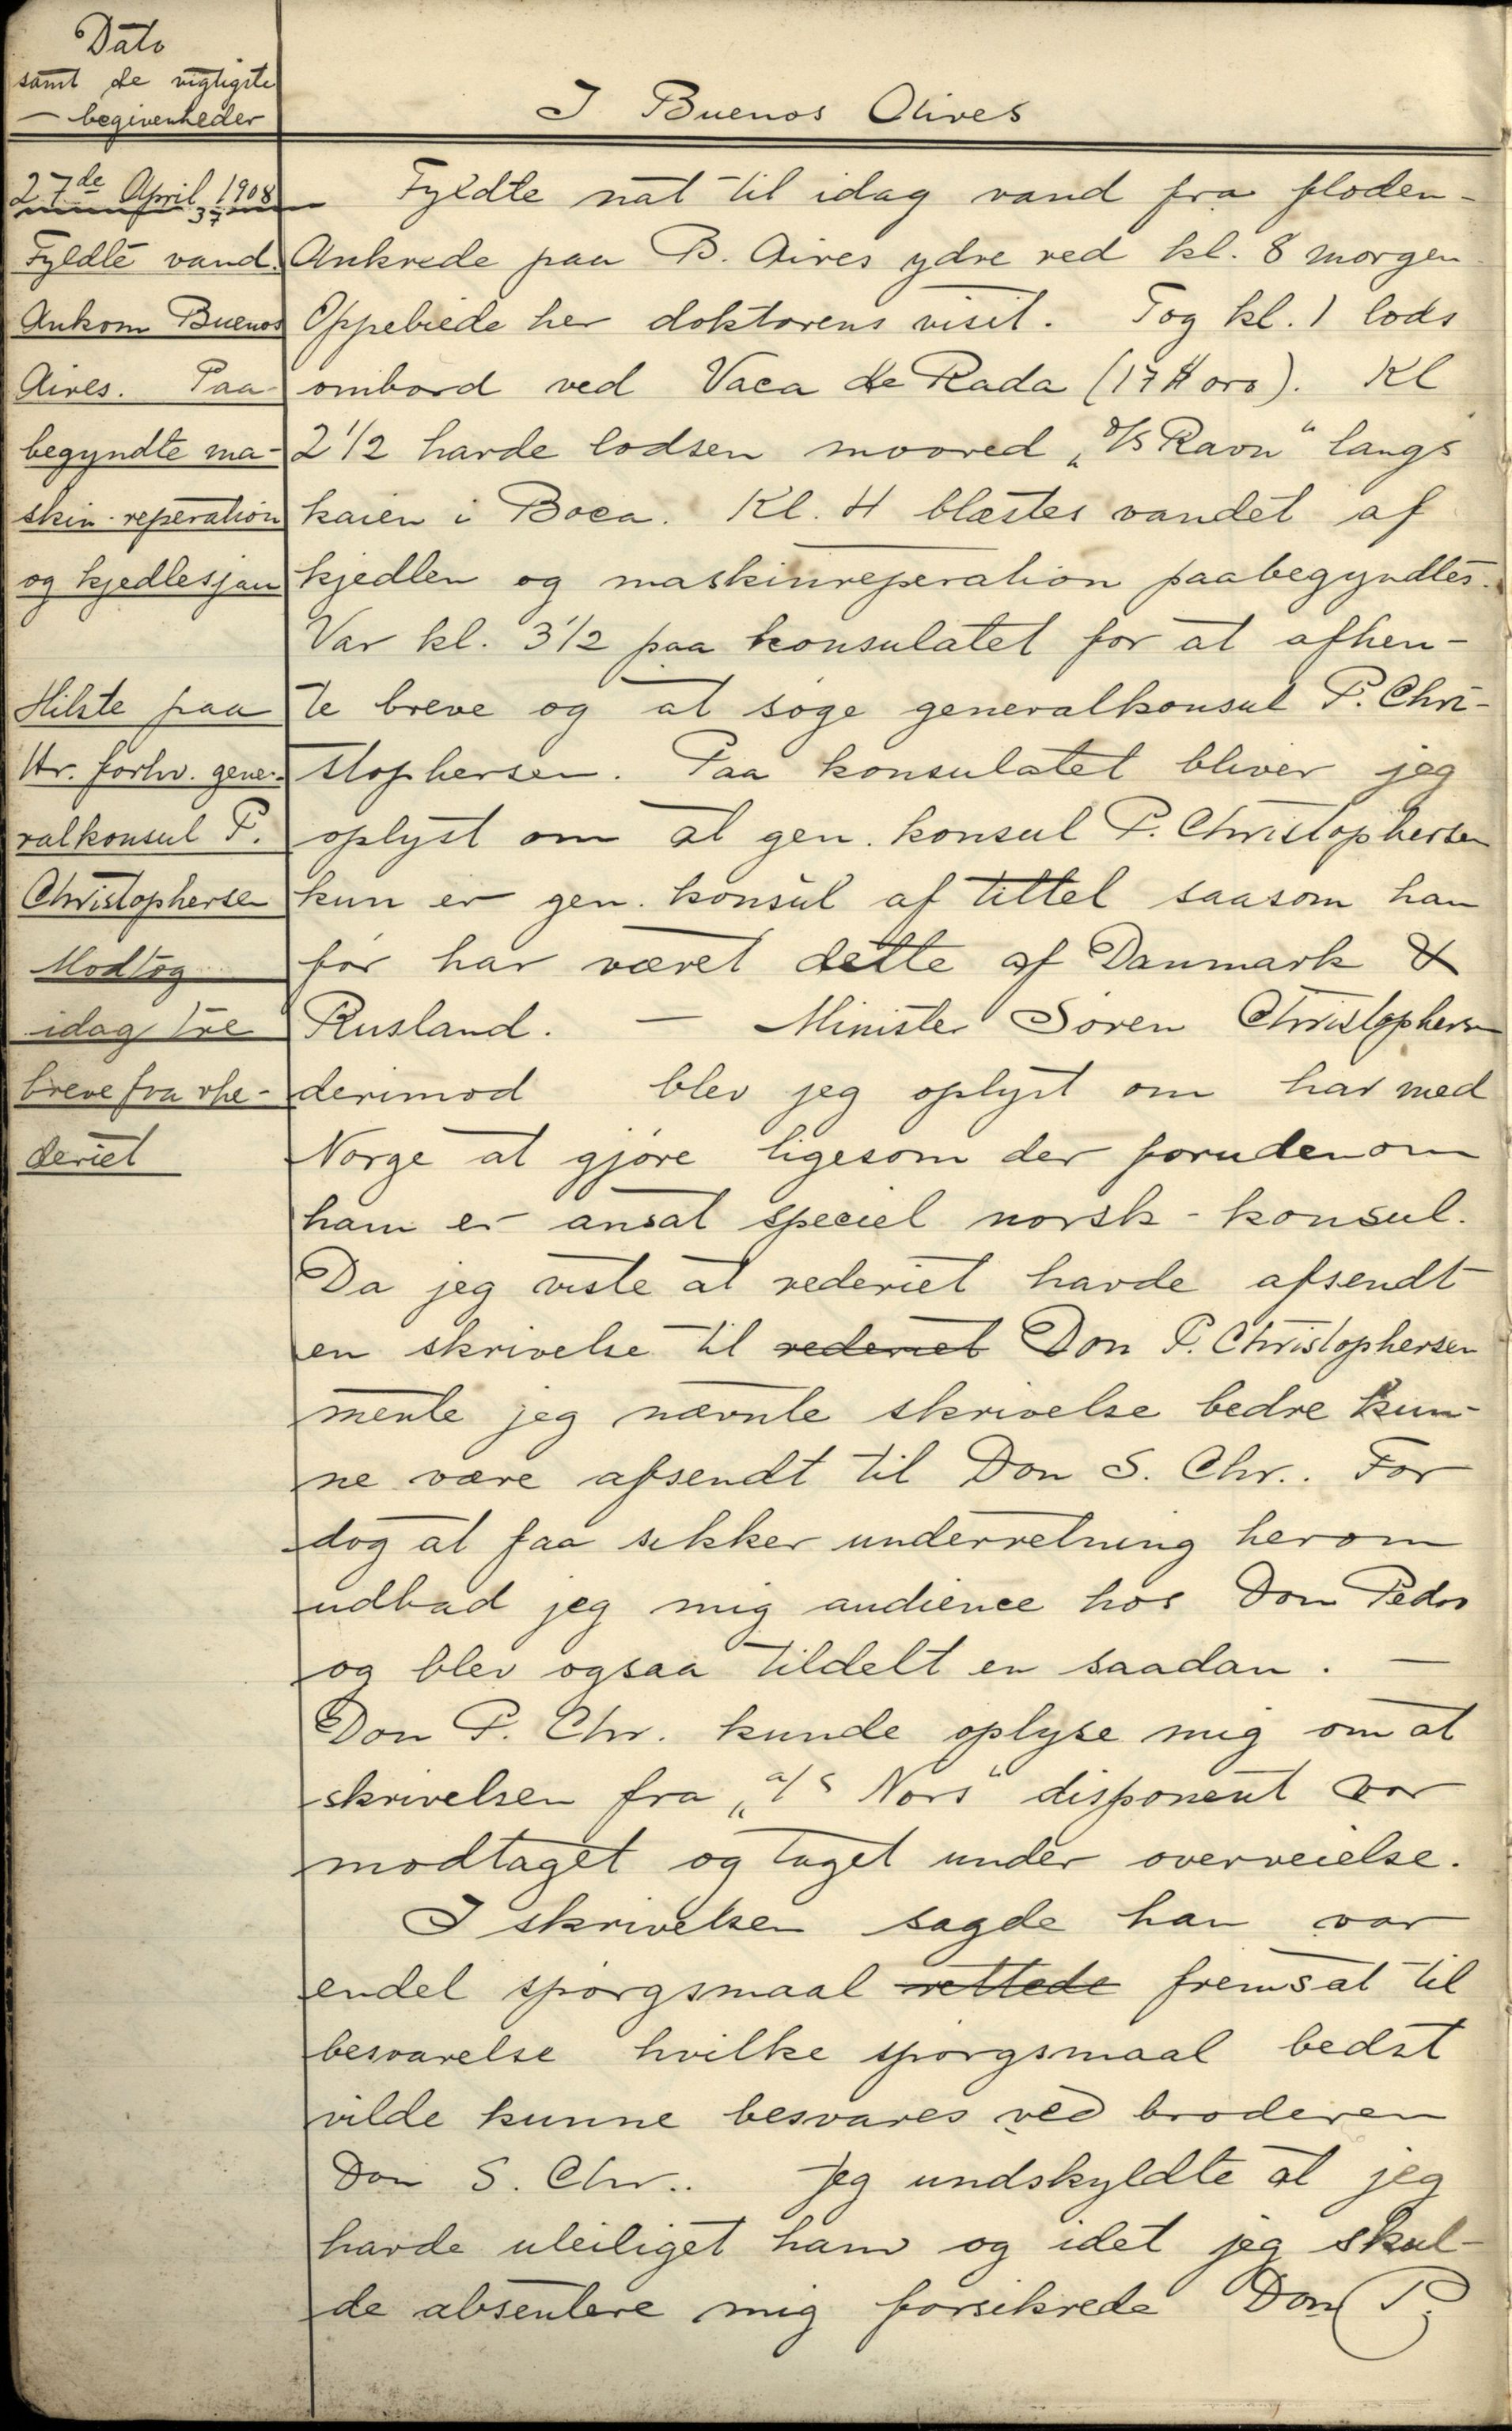 Dato
samt de vigtigste
- begivenheder
I Buenos Aires
27de April 1908
37
Fyldte vand.
Ankom Buenos
Aires. Paa-
begyndte ma-
skin-reperation
og kjedlesjau
Hilste paa
Hr. forhv. gene-
ralkonsul P.
Christophersen
Modtog
idag tre
breve fra rhe-
deriet
Fyldte nat til idag vand fra floden-
Ankrede paa B. Aires ydre red kl. 8 morgen
Oppebiede her doktorens visit. Tog kl. 1 lods
ombord ved Vaca de Rada (17 $ oro). Kl
2 1/2 havde lodsen moored „D/S Ravn" langs
kaien i Boca. Kl. 4 blæstes vandet af
kjedlen og maskinreperation paabegyndtes.
Var kl. 3 1/2 paa konsulatet for at afhen-
te breve og at søge generalkonsul P. Chri-
stophersen. Paa konsulatet bliver jeg
oplyst om at gen. konsul P. Christophersen
kun er gen. konsul af tittel saasom han
før har været dette af Danmark &
Rusland. — Minister Søren Christophersen
derimod blev jeg oplyst om har med
Norge at gjøre ligesom der forudenom
ham er ansat speciel norsk-konsul.
Da jeg viste at rederiet havde afsendt
en skrivelse til rederiet Don P. Christophersen
mente jeg nævnte skrivelse bedre kun-
ne være afsendt til Don S. Chr.. For
dog at faa sikker underretning herom
udbad jeg mig audience hos Don Pedro
og blev ogsaa tildelt en saadan. —
Don P. Chr. kunde oplyse mig om at
skrivelsen fra „a/s Nors" disponent var
modtaget og taget under overveielse.
I skrivelsen sagde han var
endel spørgsmaal rettede fremsat til
besvarelse hvilke spørgsmaal bedst
vilde kunne besvares ved broderen
Don S. Chr.. Jeg undskyldte at jeg
havde uleiliget ham og idet jeg skul-
de absentere mig forsikrede Don P.